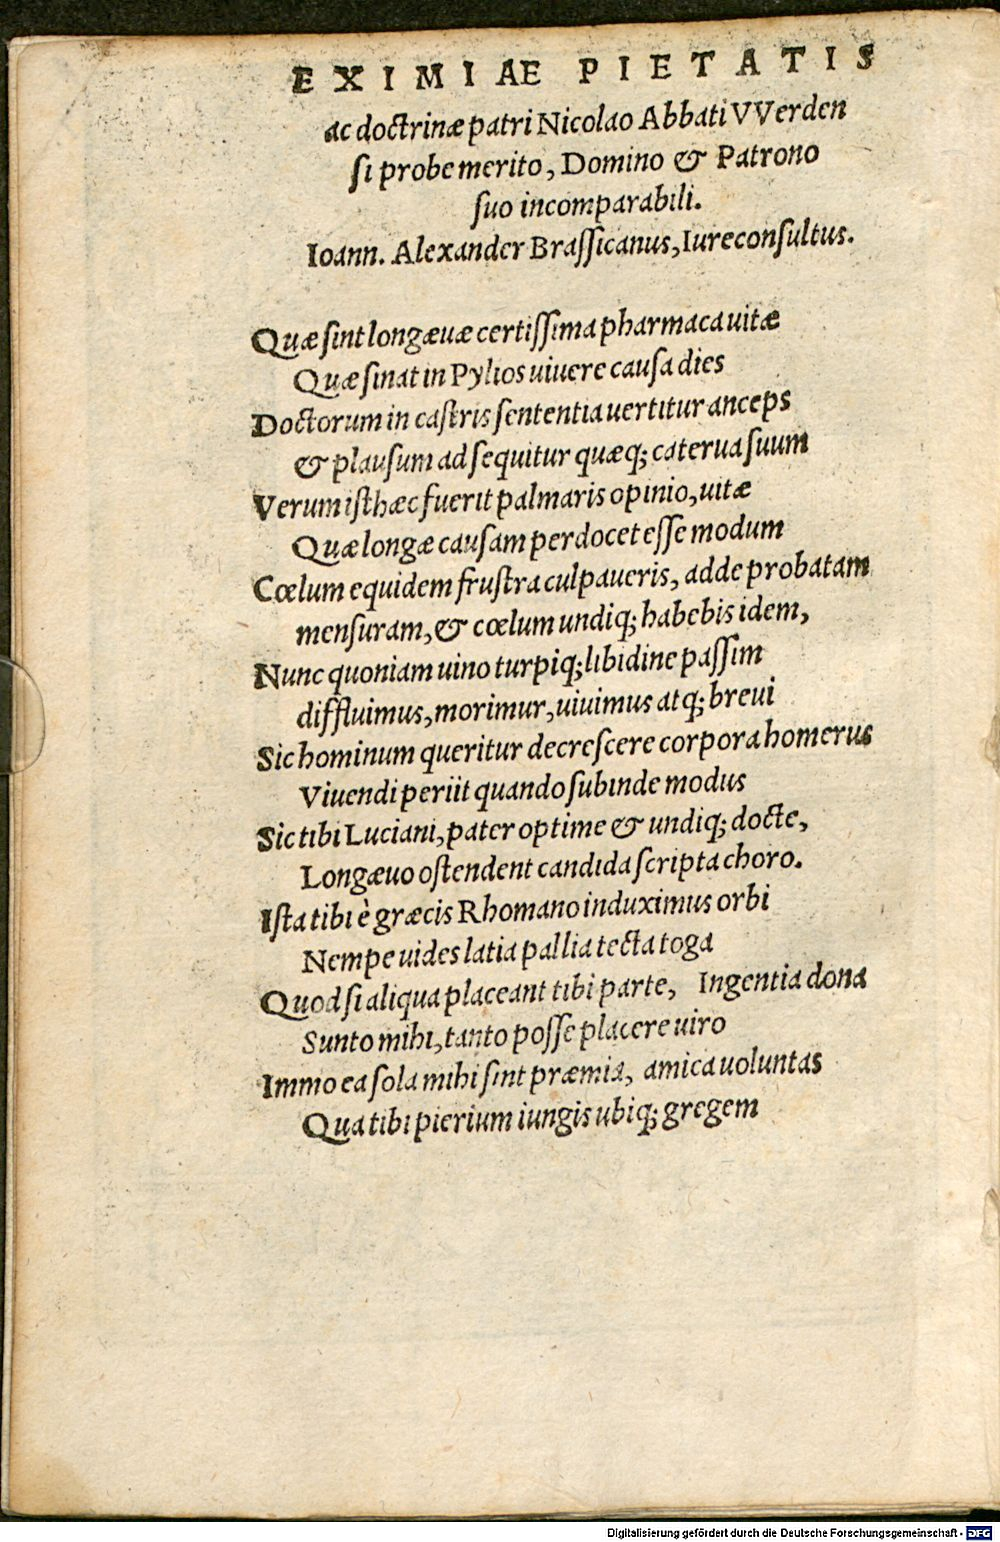 EXIMIAE PIETATIS
ac doctrinæ patri Nicolao Abbati VVerden
si probe merito, Domino & Patrono
suo incomparabili.
Ioann. Alexander Brassicanus, Iureconsultus.
Quæ sint longæuæ certissima pharmaca uitæ
Quæ sinat in Pylios uiuere causa dies
Doctorum in castris sententia uertitur anceps
& plausum ad sequitur quæq; caterua suum
Verum isthæc fuerit palmaris opinio, uitæ
Quæ longæ causam perdocet esse modum
Cœlum equidem frustra culpaueris, adde probatam
mensuram, & cœlum undiq; habebis idem,
Nunc quoniam uino turpiq; libidine passim
diffluimus, morimur, uiuimus atq; breui
Sic hominum queritur decrescere corpora homerus
Viuendi periit quando subinde modus
Sic tibi Luciani, pater optime & undiq; docte,
Longæuo ostendent candida scripta choro.
Ista tibi è græcis Rhomano induximus orbi
Nempe uides latia pallia tecta toga
Quod si aliqua placeant tibi parte, Ingentia dona
Sunto mihi, tanto posse placere uiro
Immo ea sola mihi sint præmia, amica uoluntas
Qua tibi pierium iungis ubiq; gregem
Digitalisierung gefördert durch die Deutsche Forschungsgemeinschaft - DFG